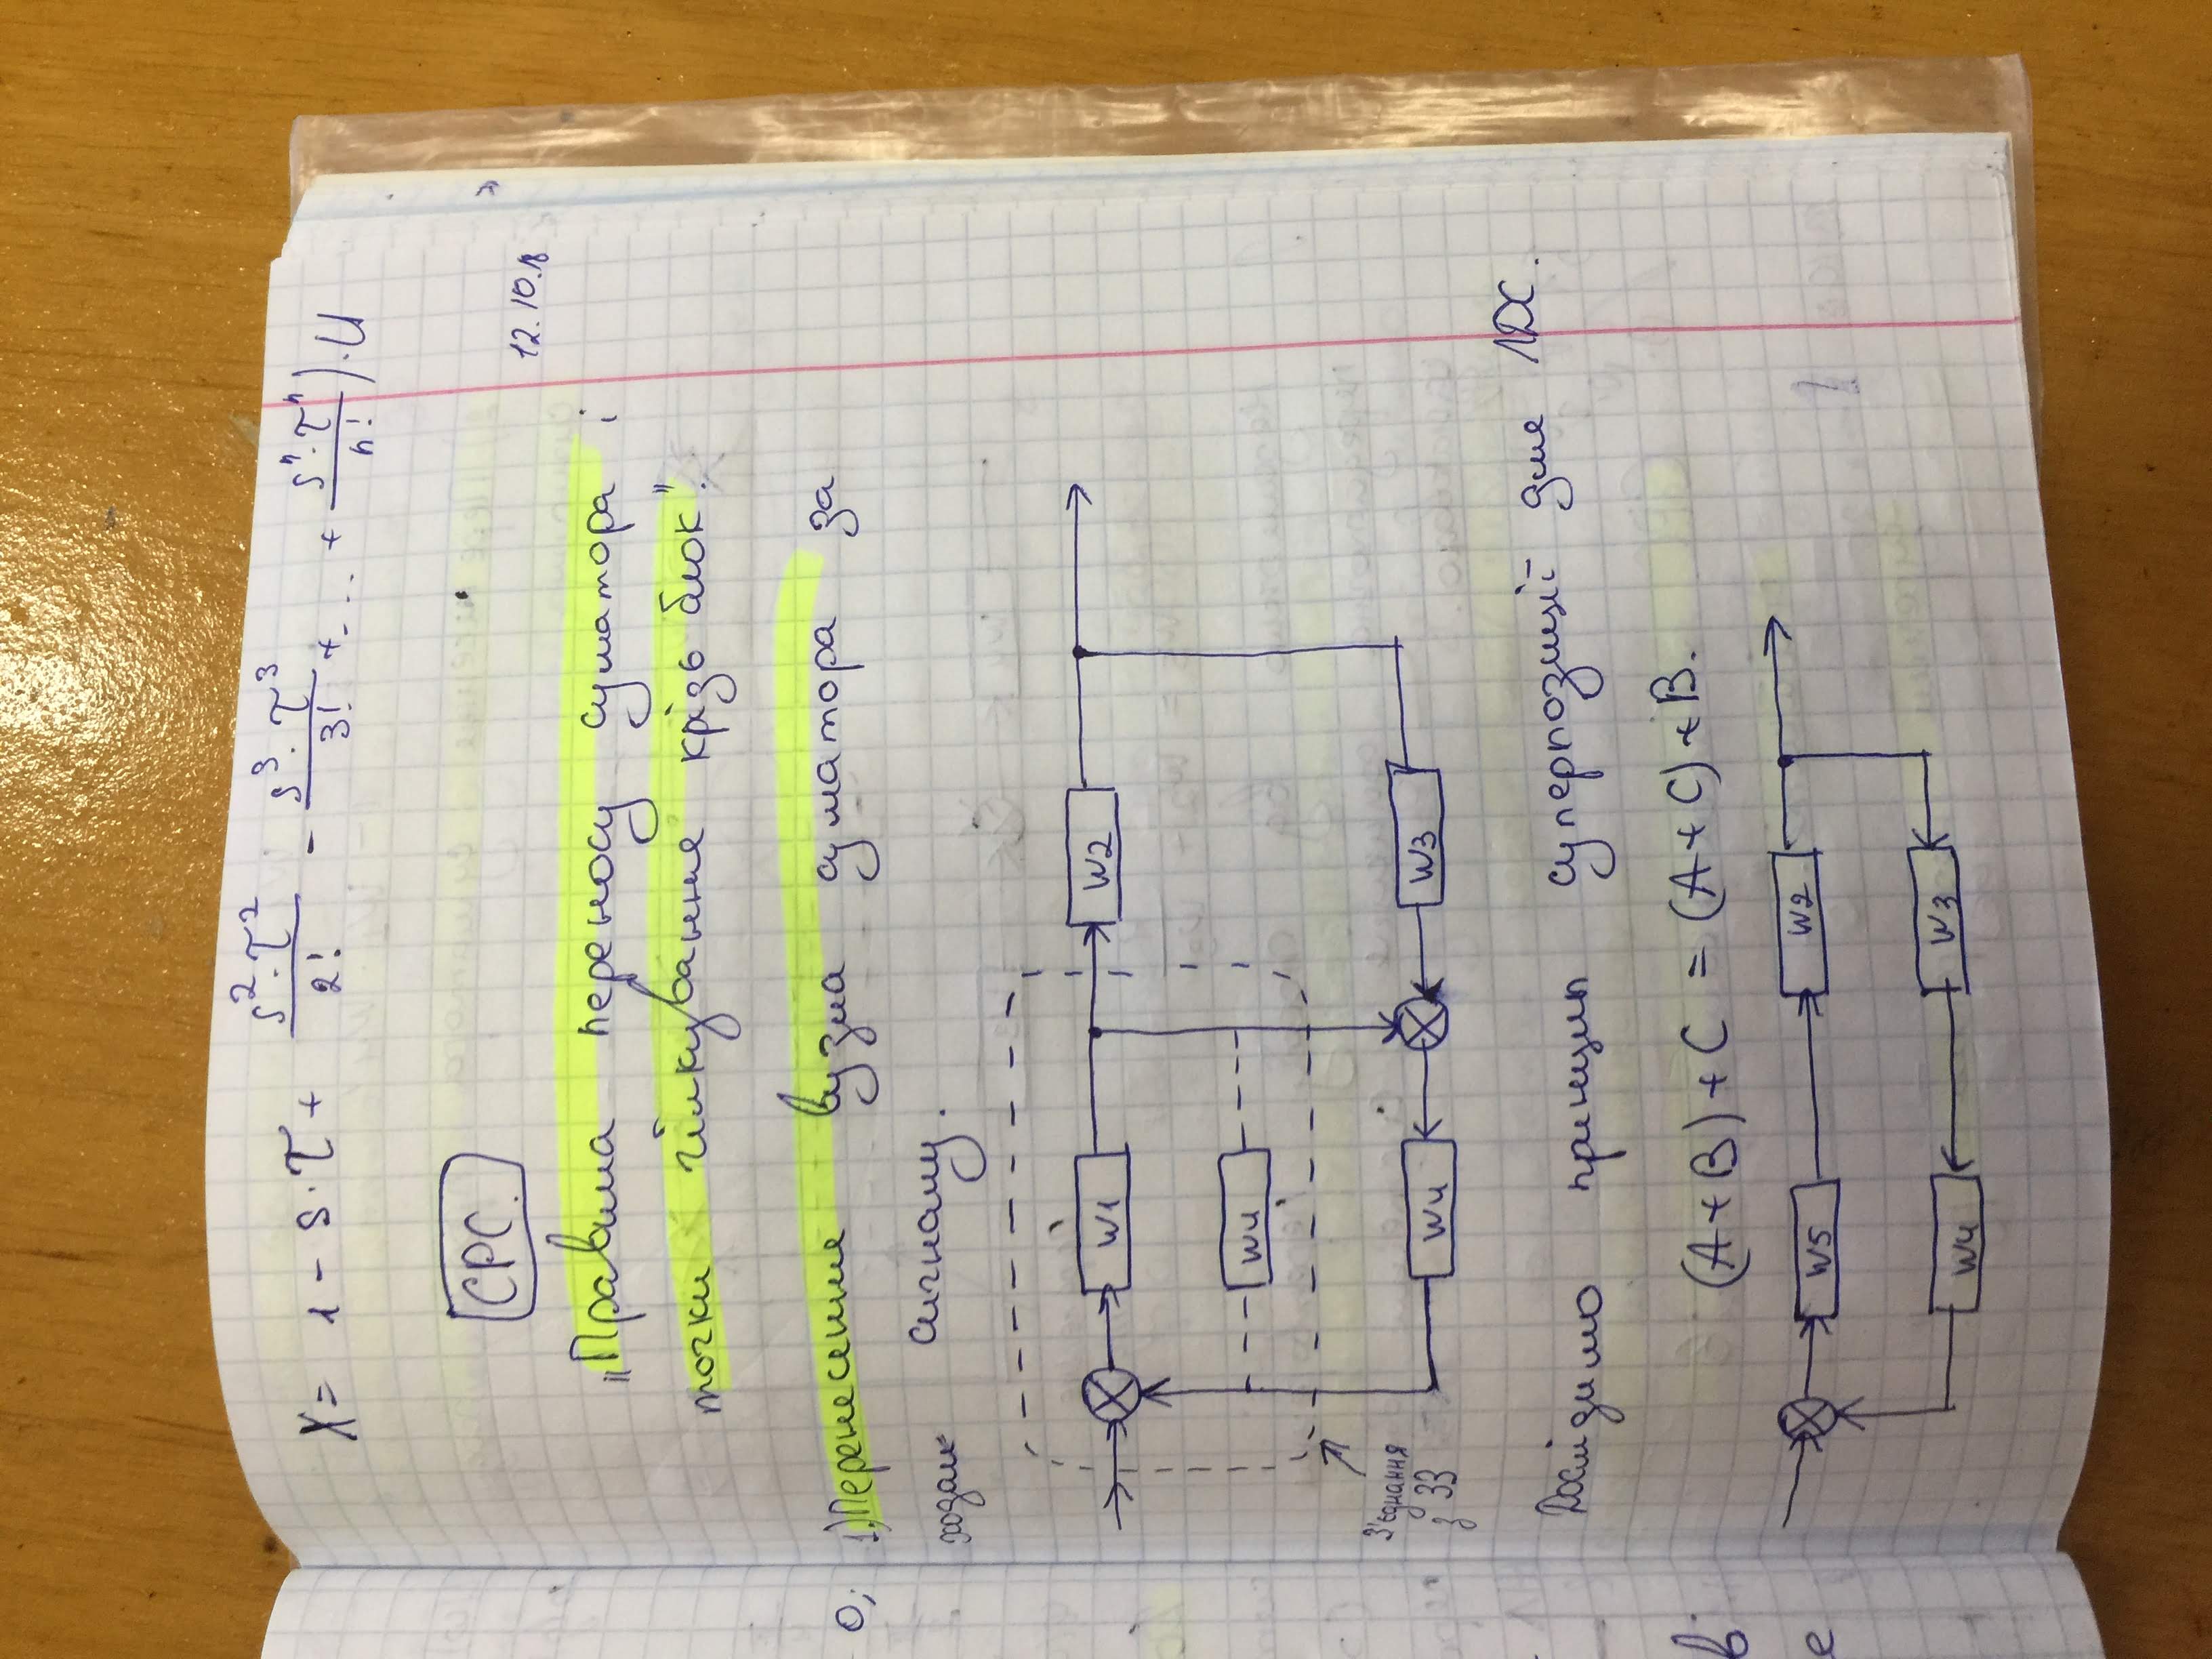 X = 1 - s·τ + s²·τ²/2! - s³·τ³/3! + ... + sⁿ·τⁿ/n!)·U
СРС.
12.10.18
„Правила переносу суматора і
точки гілкування крізь блок".
1.) Перенесення вузла суматора за
ходом сигналу.
W1 W2
W4
З'єднання
з ЗЗ
W4 W3
Дослідимо принцип суперпозиції для ЛДС.
(A+B)+C = (A+C)+B.
W5 W2
W4 W3
0;
в
е